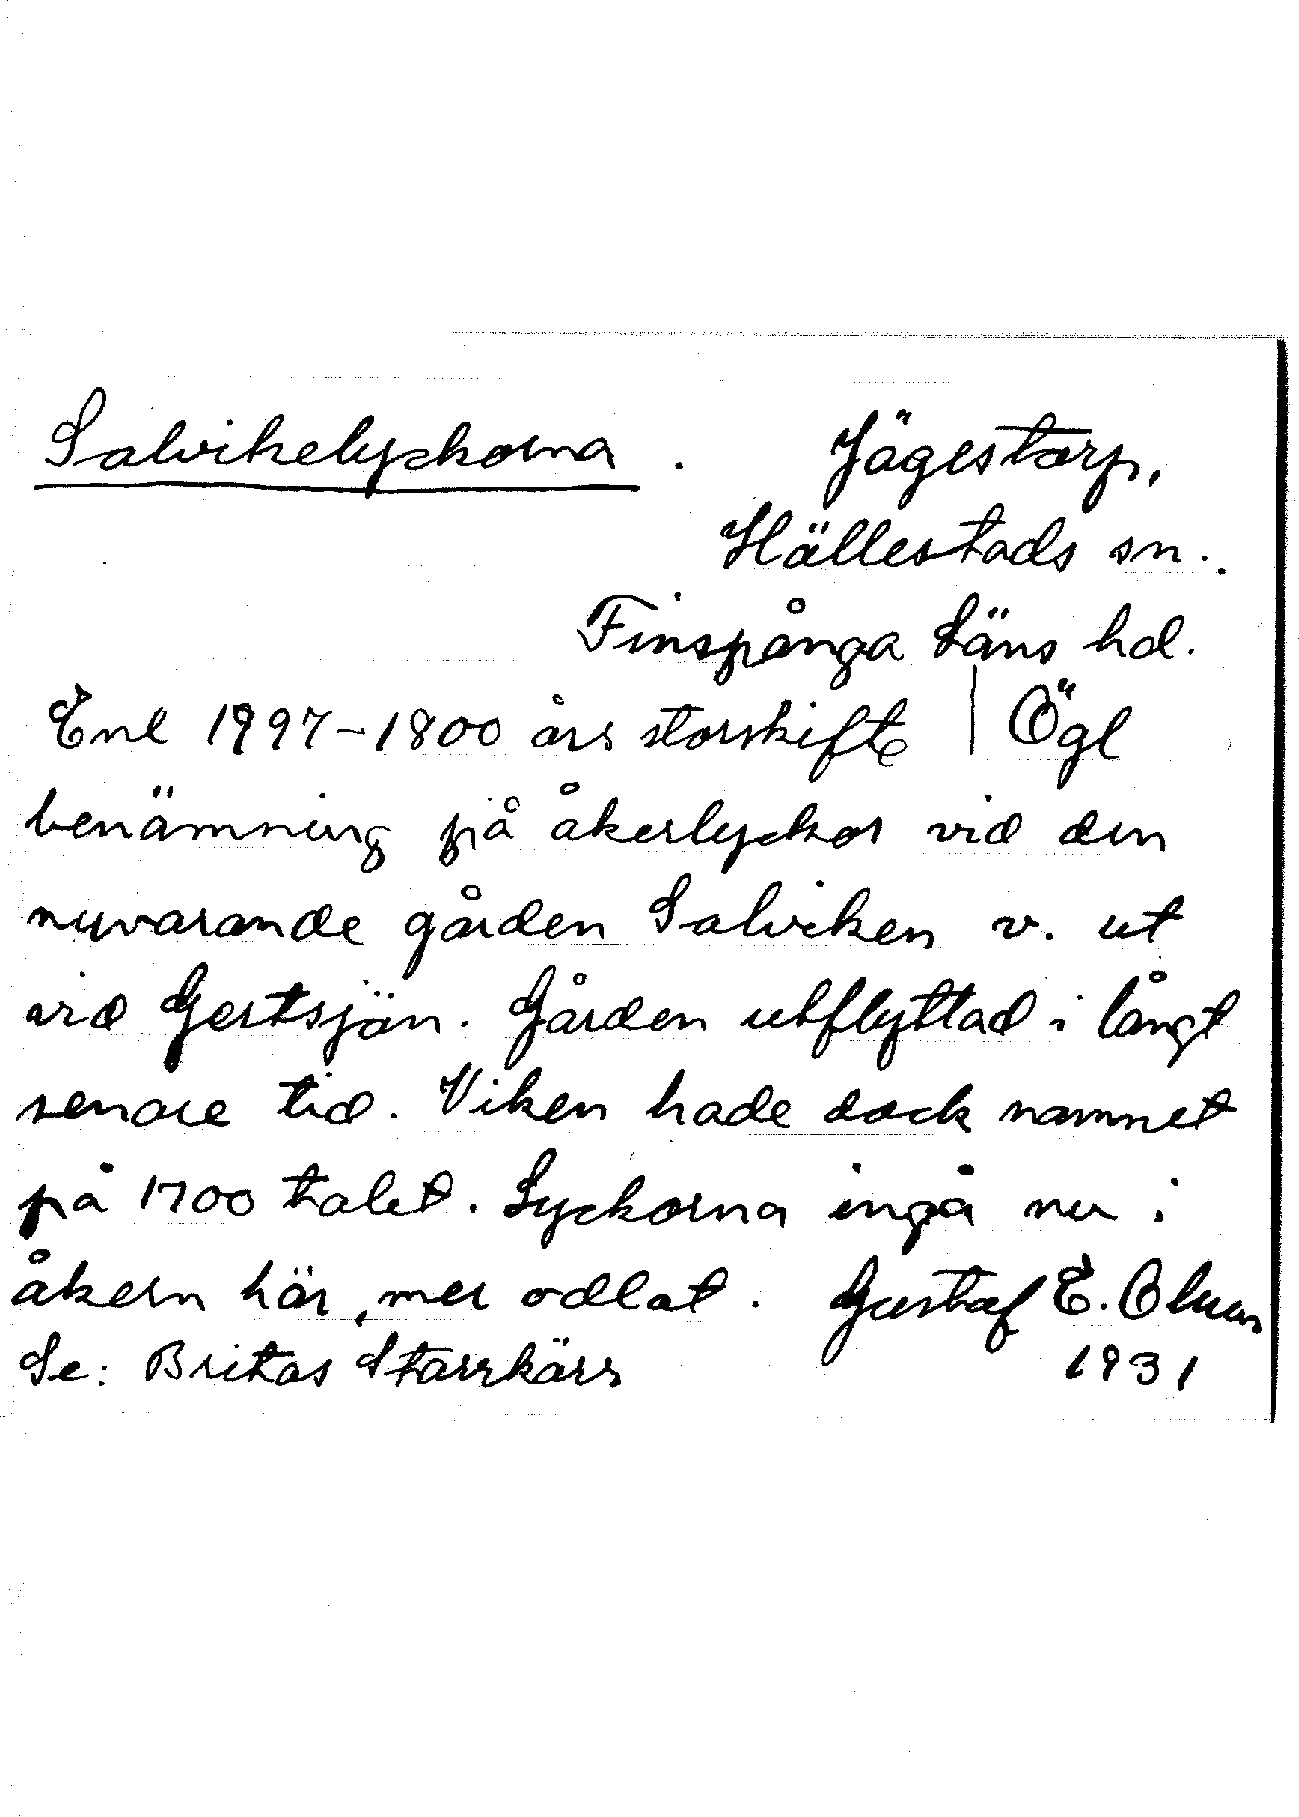 Salvikelyckorna. Jägestorp,
Hällestads sn.
Finspånga Läns hd.
Enl 1797-1800 års storskifte | Ögl
benämning på åkerlyckor vid den
nuvarande gården Salviken v. ut
vid Gertsjön. Gården utflyttad i långt
senare tid. Viken hade dock namnet
på 1700 talet. Lyckorna ingå nu i
åkern här, mer odlat. Gustaf E. Olsson
Se: Britas Starrkärr 1931